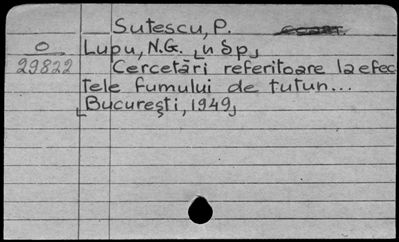 Sutescu, P.
O Lupu, N.G. [n Sp]
29822 Cercetări referitoare la efec
tele fumului de tutun...
[București, 1949]